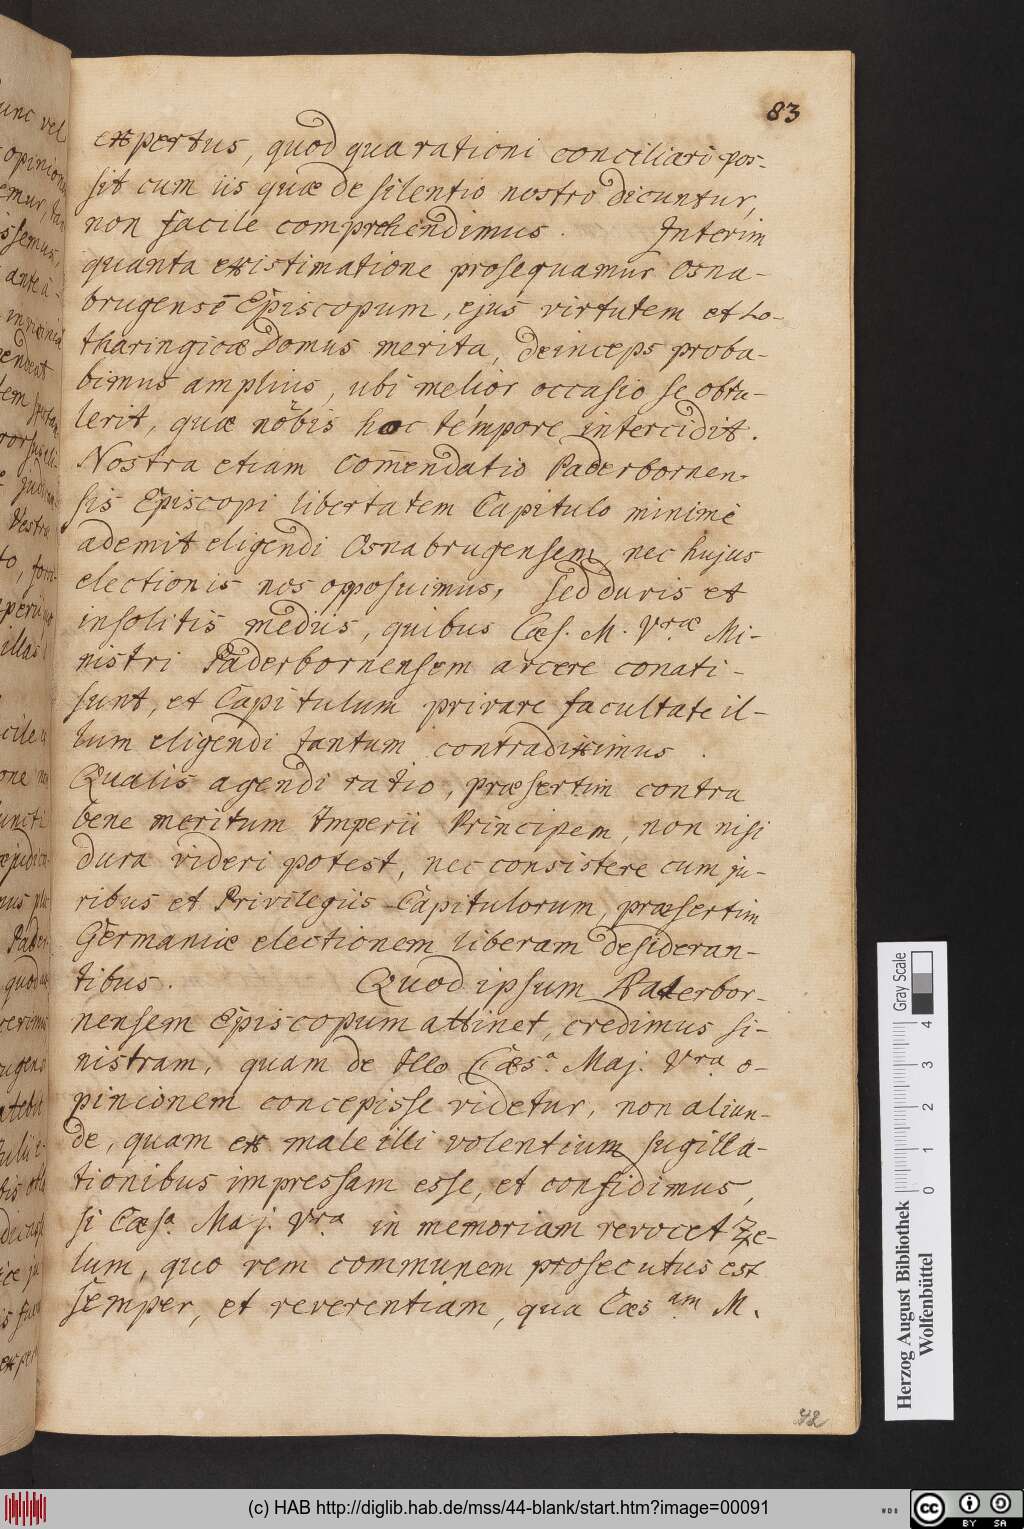 83
expertus, quod qua rationi conciliari pos-
sit cum iis quæ de silentio nostro dicuntur,
non facile comprehendimus. Interim
quanta existimatione prosequamur Osna-
brugensē Episcopum, ejus virtutem et Lo-
tharingicæ Domus merita, deinceps proba-
bimus amplius, ubi melior occasio se obtu-
lerit, quæ nobis hoc tempore intercidit.
Nostra etiam com̄endatio Paderbornen-
sis Episcopi libertatem Capitulo minimè
ademit eligendi Osnabrugensem, nec hujus
electionis nos opposuimus, sed duris et
insolitis mediis, quibus Cæs. M. Vræ Mi-
nistri Paderbornensem arcere conati-
sunt, et Capitulum privare facultate il-
lum eligendi tantum contradiximus.
Qualis agendi ratio, præsertim contra
bene meritum Imperii Principem, non nisi
dura videri potest, nec consistere cum ju-
ribus et Privilegiis Capitulorum, præsertim
Germaniæ electionem liberam desideran-
tibus. Quod ipsum Paderbor-
nensem Episcopum attinet, credimus si-
nistram, quam de Illo Cæsa. Maj. Vra o-
pinionem concepisse videtur, non aliun-
de, quam ex male illi volentium sugilla-
tionibus impressam esse, et confidimus,
si Cæsa. Maj. Vra in memoriam revocet Ze-
lum, quo rem communem prosecutus est
semper, et reverentiam, qua Cæsam M.
42
unc vel
opinion
ante à-
Vestra
illas
quod
Herzog August Bibliothek
Wolfenbüttel
Gray Scale
0 1 2 3 4
(c) HAB http://diglib.hab.de/mss/44-blank/start.htm?image=00091
WDB
cc BY SA